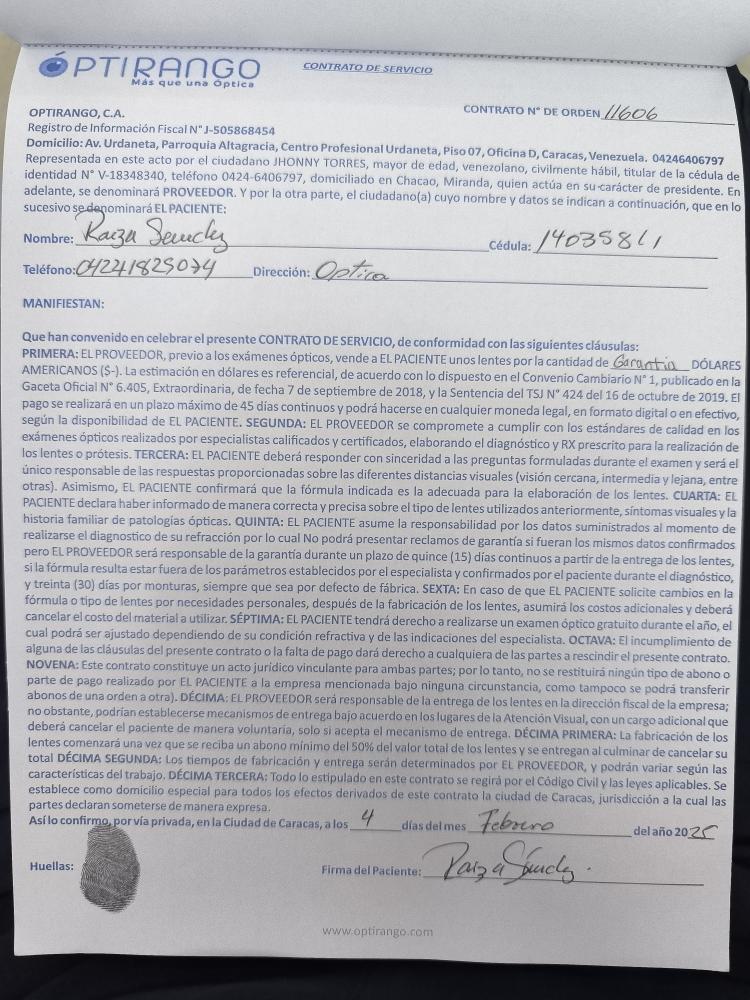 ÓPTIRANGO
Más que una Óptica
CONTRATO DE SERVICIO
CONTRATO N° DE ORDEN 11606
OPTIRANGO, C.A.
Registro de Información Fiscal N° J-505868454
Domicilio: Av. Urdaneta, Parroquia Altagracia, Centro Profesional Urdaneta, Piso 07, Oficina D, Caracas, Venezuela. 04246406797
Representada en este acto por el ciudadano JHONNY TORRES, mayor de edad, venezolano, civilmente hábil, titular de la cédula de
identidad N° V-18348340, teléfono 0424-6406797, domiciliado en Chacao, Miranda, quien actúa en su carácter de presidente. En
adelante, se denominará PROVEEDOR. Y por la otra parte, el ciudadano(a) cuyo nombre y datos se indican a continuación, que en lo
sucesivo se denominará EL PACIENTE:
Nombre: Raiza Sanchez Cédula:
Teléfono: Dirección: Optica
MANIFIESTAN:
Que han convenido en celebrar el presente CONTRATO DE SERVICIO, de conformidad con las siguientes cláusulas:
PRIMERA: EL PROVEEDOR, previo a los exámenes ópticos, vende a EL PACIENTE unos lentes por la cantidad de Garantia DÓLARES
AMERICANOS ($-). La estimación en dólares es referencial, de acuerdo con lo dispuesto en el Convenio Cambiario N° 1, publicado en la
Gaceta Oficial N° 6.405, Extraordinaria, de fecha 7 de septiembre de 2018, y la Sentencia del TSJ N° 424 del 16 de octubre de 2019. El
pago se realizará en un plazo máximo de 45 días continuos y podrá hacerse en cualquier moneda legal, en formato digital o en efectivo,
según la disponibilidad de EL PACIENTE. SEGUNDA: EL PROVEEDOR se compromete a cumplir con los estándares de calidad en los
exámenes ópticos realizados por especialistas calificados y certificados, elaborando el diagnóstico y RX prescrito para la realización de
los lentes o prótesis. TERCERA: EL PACIENTE deberá responder con sinceridad a las preguntas formuladas durante el examen y será el
único responsable de las respuestas proporcionadas sobre las diferentes distancias visuales (visión cercana, intermedia y lejana, entre
otras). Asimismo, EL PACIENTE confirmará que la fórmula indicada es la adecuada para la elaboración de los lentes. CUARTA: EL
PACIENTE declara haber informado de manera correcta y precisa sobre el tipo de lentes utilizados anteriormente, síntomas visuales y la
historia familiar de patologías ópticas. QUINTA: EL PACIENTE asume la responsabilidad por los datos suministrados al momento de
realizarse el diagnostico de su refracción por lo cual No podrá presentar reclamos de garantía si fueran los mismos datos confirmados
pero EL PROVEEDOR será responsable de la garantía durante un plazo de quince (15) días continuos a partir de la entrega de los lentes,
si la fórmula resulta estar fuera de los parámetros establecidos por el especialista y confirmados por el paciente durante el diagnóstico,
y treinta (30) días por monturas, siempre que sea por defecto de fábrica. SEXTA: En caso de que EL PACIENTE solicite cambios en la
fórmula o tipo de lentes por necesidades personales, después de la fabricación de los lentes, asumirá los costos adicionales y deberá
cancelar el costo del material a utilizar. SÉPTIMA: EL PACIENTE tendrá derecho a realizarse un examen óptico gratuito durante el año, el
cual podrá ser ajustado dependiendo de su condición refractiva y de las indicaciones del especialista. OCTAVA: El incumplimiento de
alguna de las cláusulas del presente contrato o la falta de pago dará derecho a cualquiera de las partes a rescindir el presente contrato.
NOVENA: Este contrato constituye un acto jurídico vinculante para ambas partes; por lo tanto, no se restituirá ningún tipo de abono o
parte de pago realizado por EL PACIENTE a la empresa mencionada bajo ninguna circunstancia, como tampoco se podrá transferir
abonos de una orden a otra). DÉCIMA: EL PROVEEDOR será responsable de la entrega de los lentes en la dirección fiscal de la empresa;
no obstante, podrían establecerse mecanismos de entrega bajo acuerdo en los lugares de la Atención Visual, con un cargo adicional que
deberá cancelar el paciente de manera voluntaria, solo si acepta el mecanismo de entrega. DÉCIMA PRIMERA: La fabricación de los
lentes comenzará una vez que se reciba un abono mínimo del 50% del valor total de los lentes y se entregan al culminar de cancelar su
total DÉCIMA SEGUNDA: Los tiempos de fabricación y entrega serán determinados por EL PROVEEDOR, y podrán variar según las
características del trabajo. DÉCIMA TERCERA: Todo lo estipulado en este contrato se regirá por el Código Civil y las leyes aplicables. Se
establece como domicilio especial para todos los efectos derivados de este contrato la ciudad de Caracas, jurisdicción a la cual las
partes declaran someterse de manera expresa.
Así lo confirmo, por vía privada, en la Ciudad de Caracas, a los 4 días del mes Febrero del año 2025
Huellas: Firma del Paciente: Raiza Sánchez.
www.optirango.com